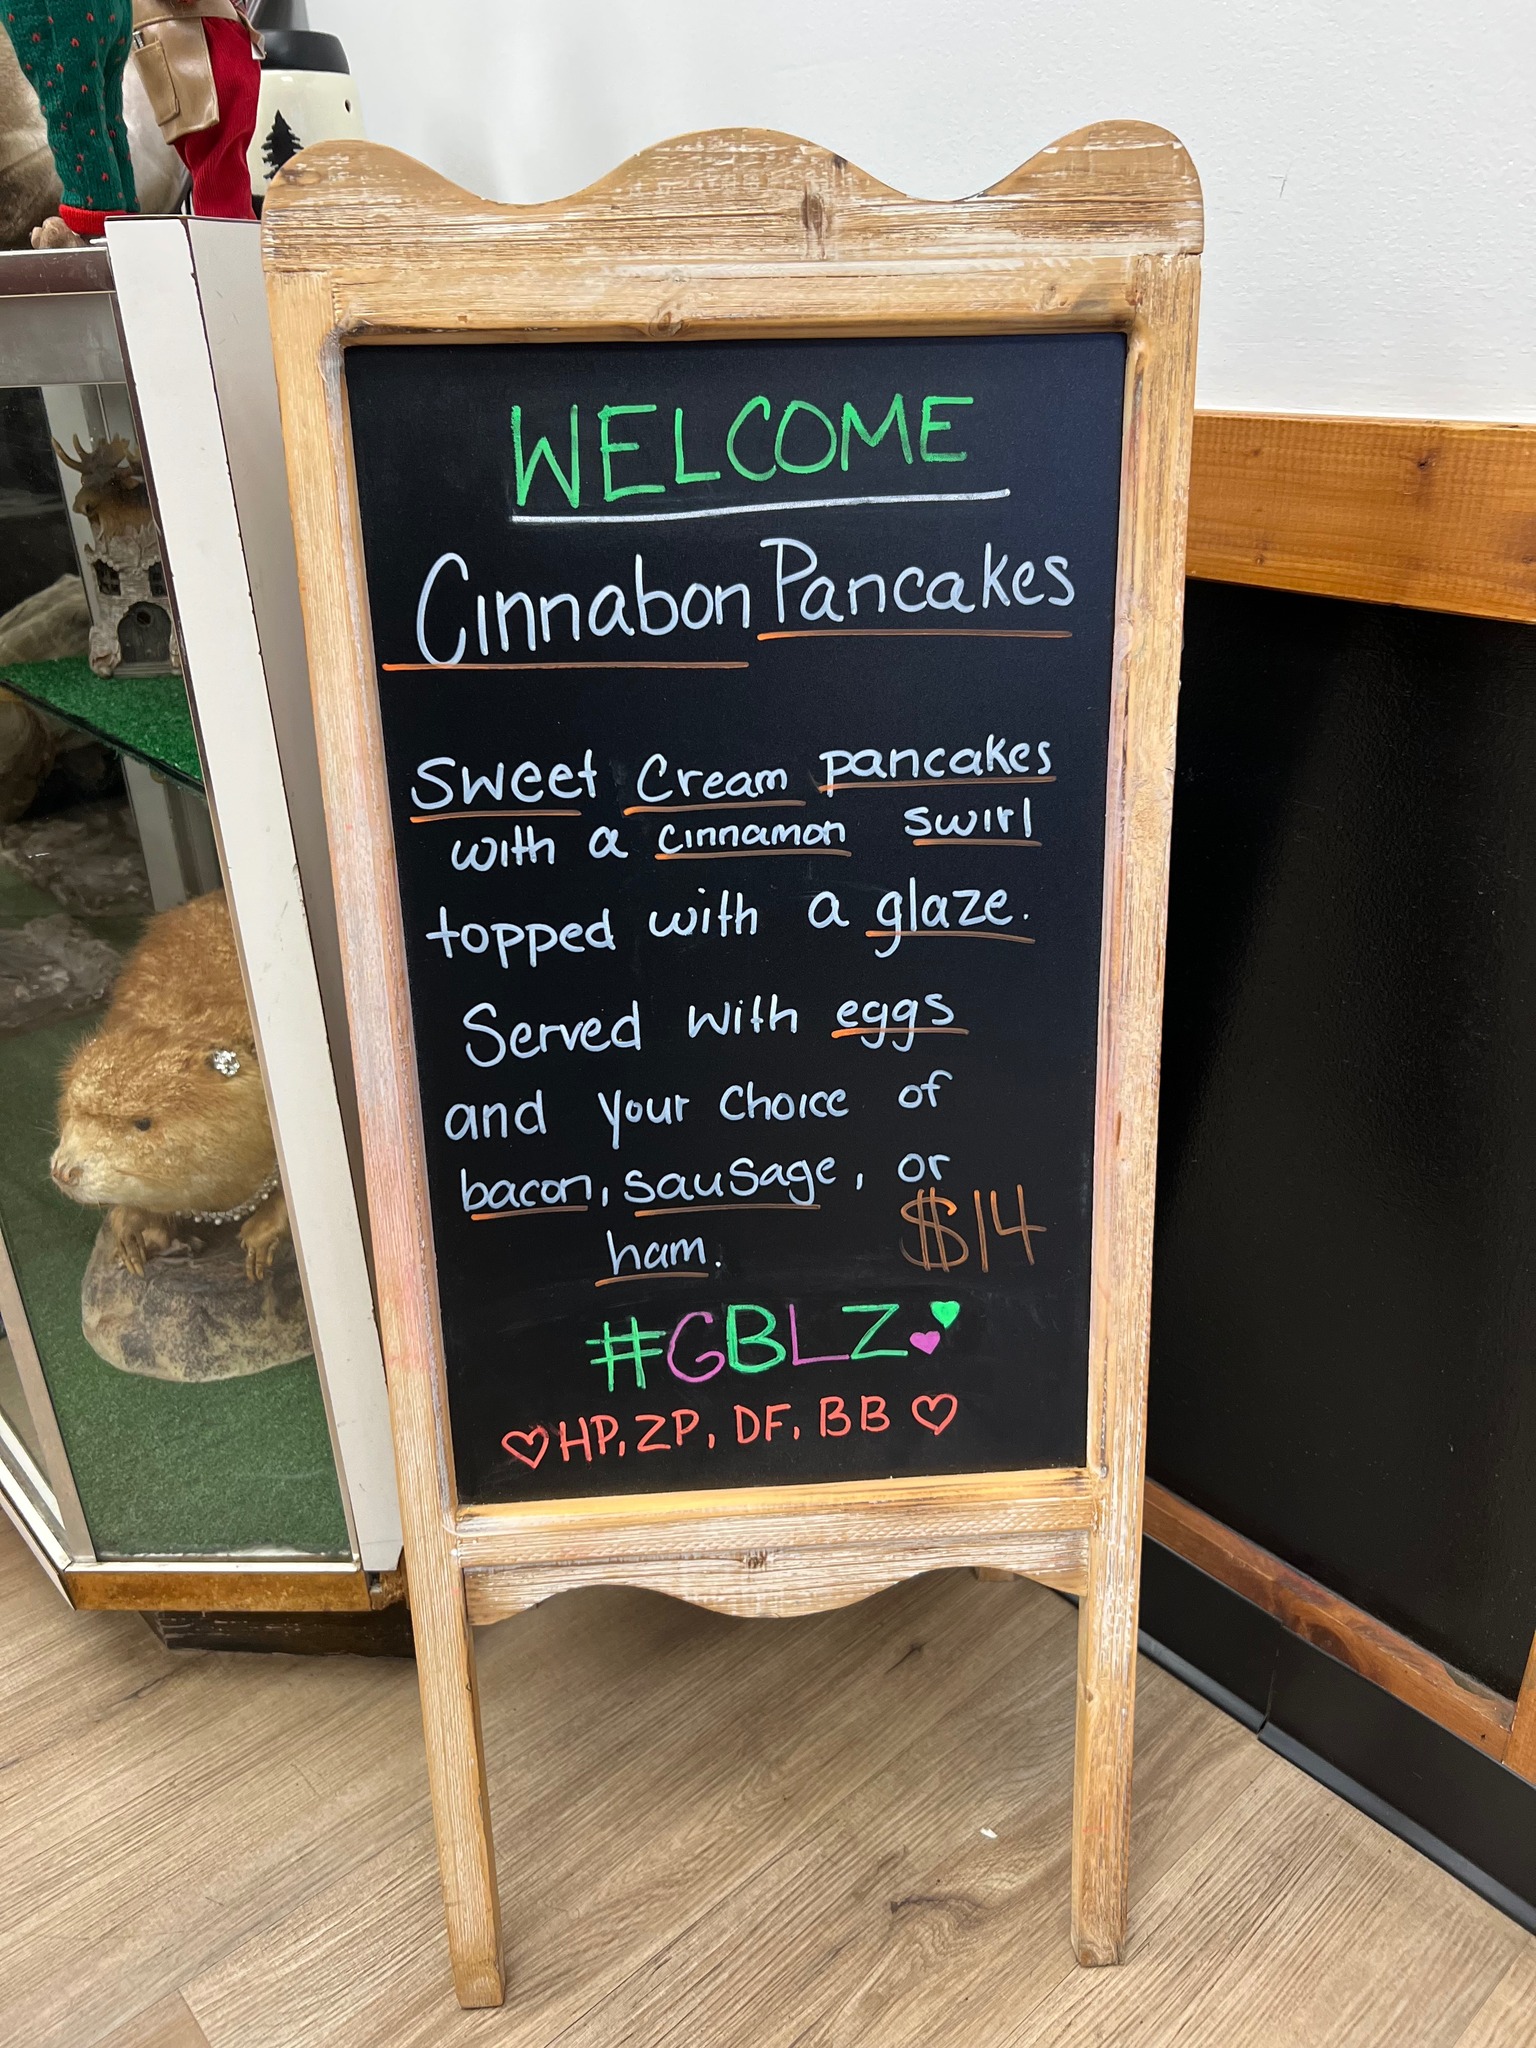 WELCOME
Cinnabon Pancakes
Sweet Cream pancakes
with a cinnamon swirl
topped with a glaze.
Served with eggs
and your choice of
bacon, sausage, or
ham. $14
#GBLZ
HP, ZP, DF, BB